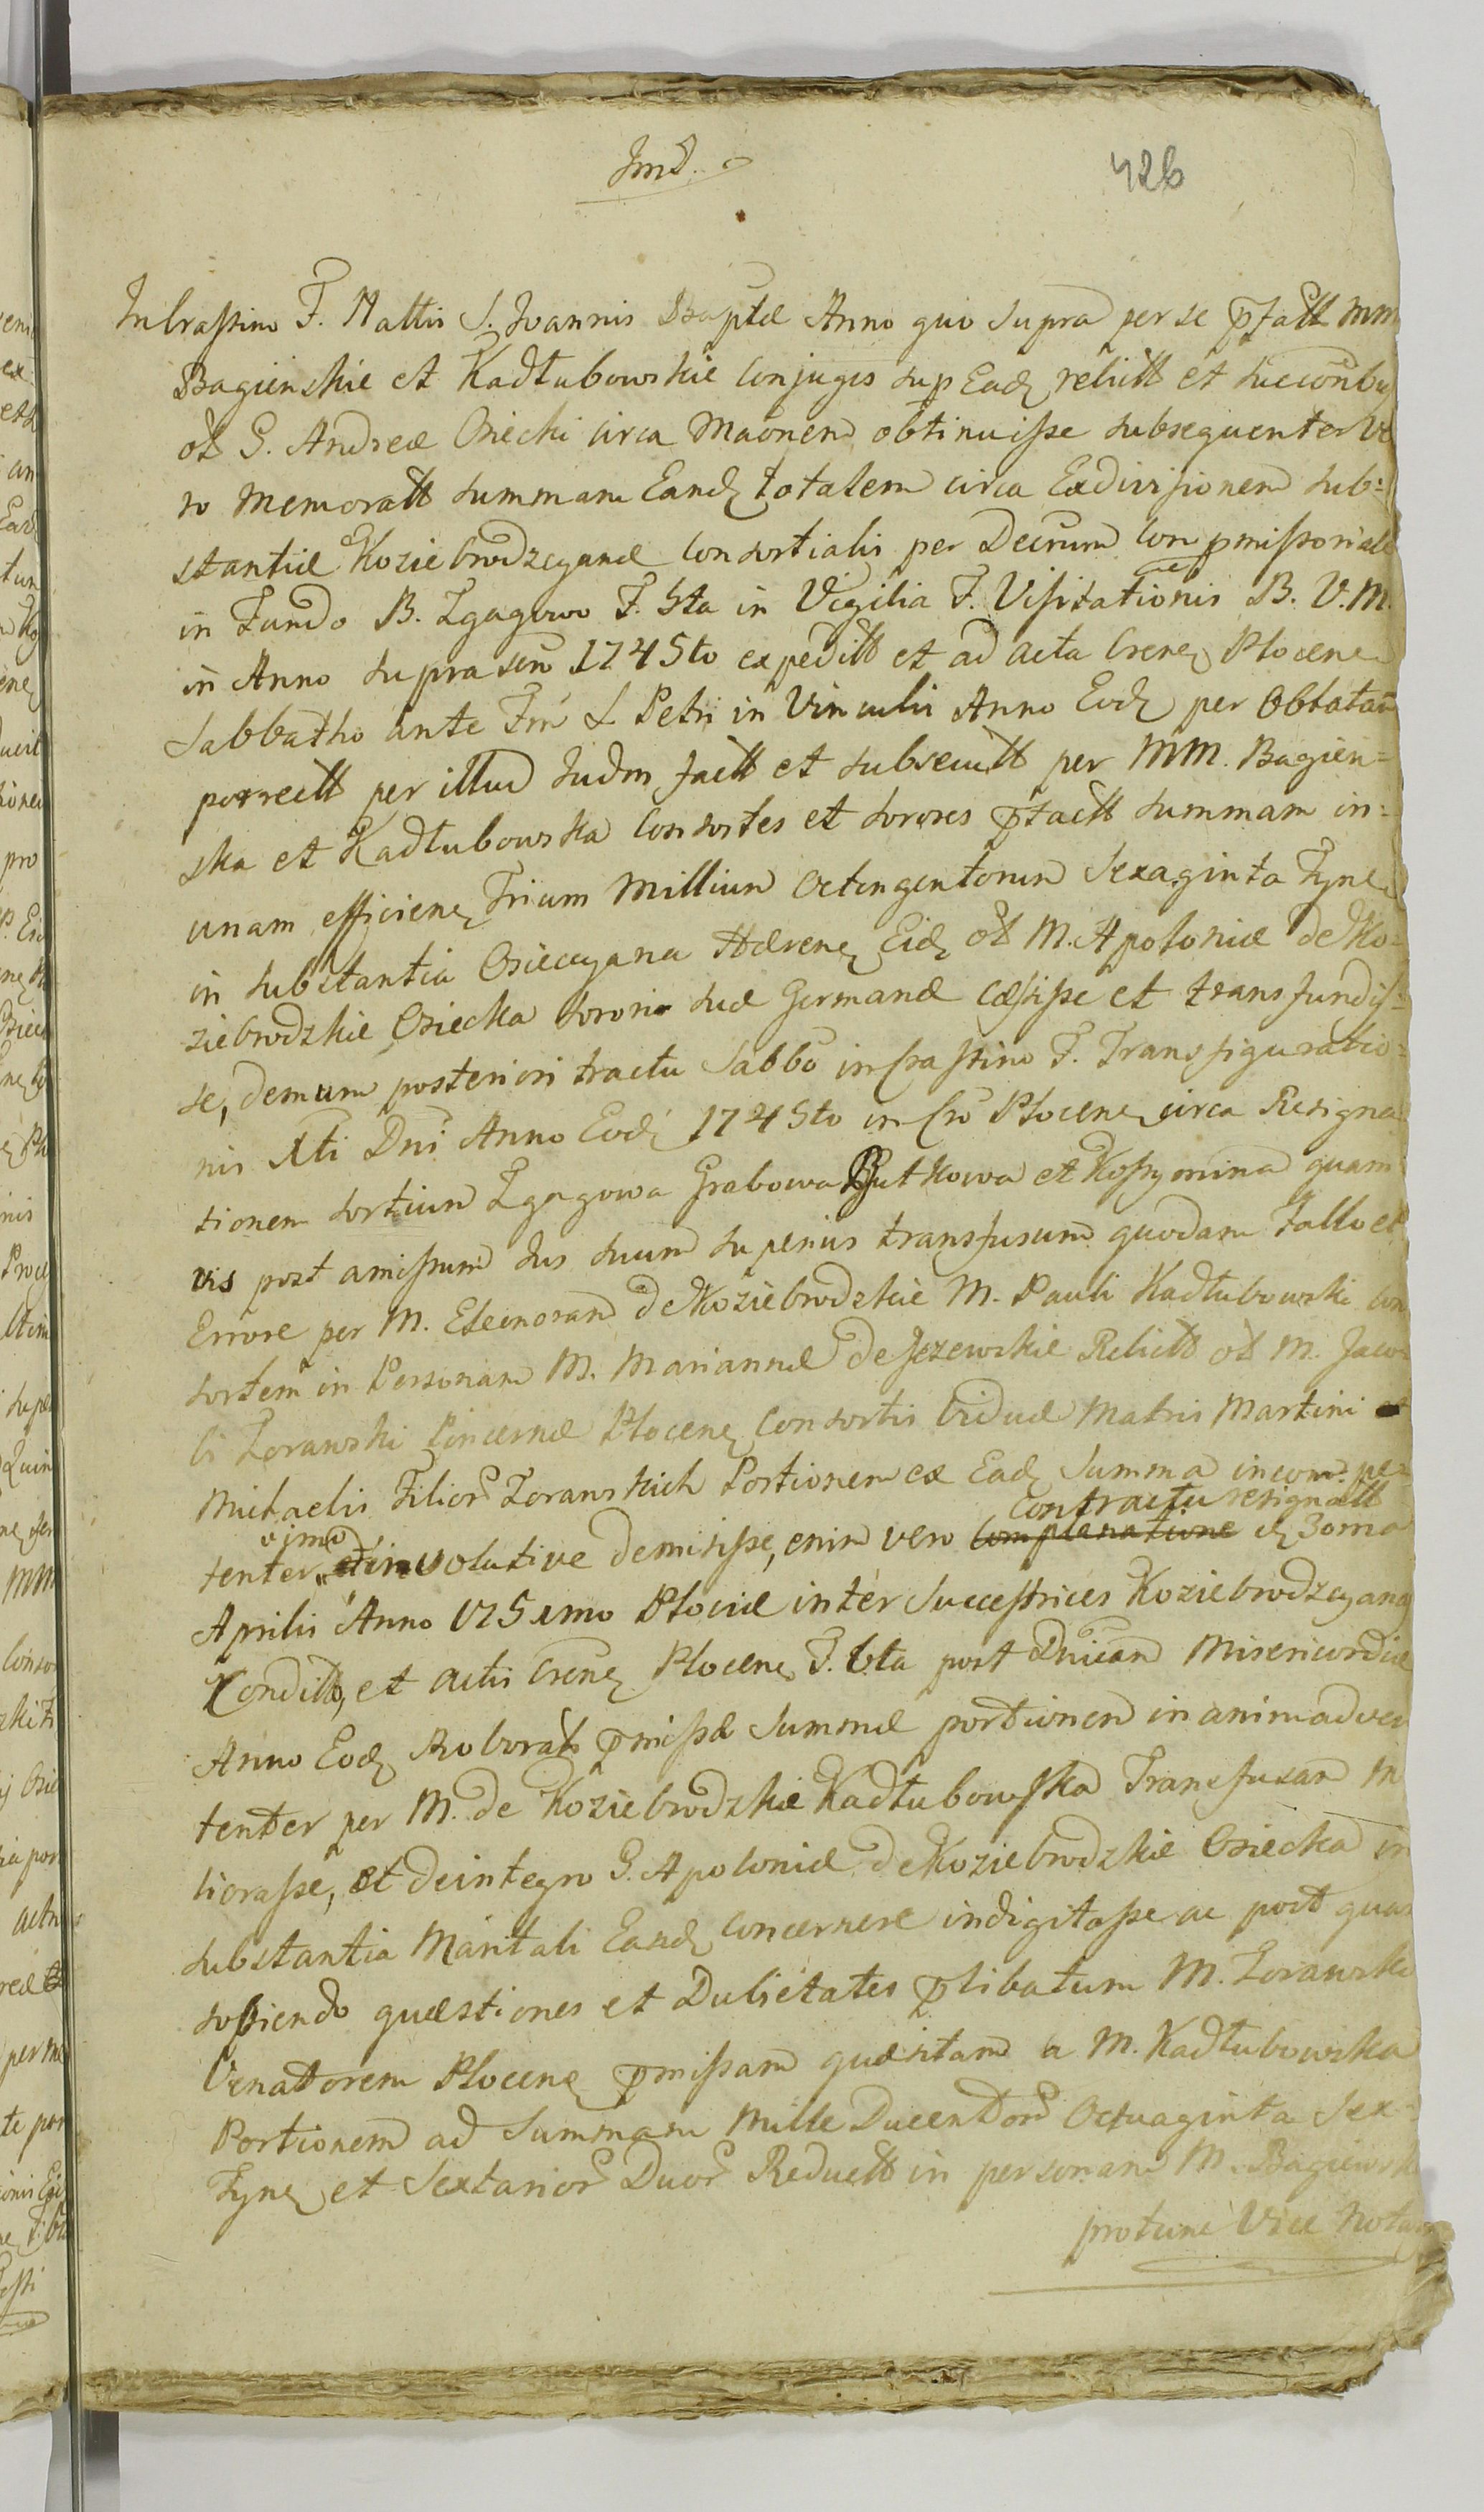 Jmd.
426
In Crastino F. Nattis S. Joannis Baptæ Anno quo supra per se pfatt MM
Bagienskie et Kadłubowskie Conjuges sup Eadq relictt et succōnbus
olt G. Andreæ Osiecki circa Maōnem obtinuisse subsequenter Ve
ro Memoratt summam Eandq totalem circa Exdivisionem sub=
stantiæ Koziebrodzcyanæ Consortialis per Decrum Compmissoriale
in Fundo B. Zgagowo F. 5ta in Vigilia F. Visitationis B. V. M.
in Anno supra scrō 1745to expeditt et ad acta Crenq Plocenq
Sabbatho ante Fm S. Petri in Vinculis Anno Eodq per Oblatam
porrectt per illud sudm factt et subsecutt per MM. Bagien=
ska et Kadłubowska Consortes et sorores ptactt summam in=
unam efficienq Trium Millium Octingentorum Sexaginta Tynf
in substantia Osiecyana Hærenq Eidq olt M. Apoloniæ de Ko=
ziebrodzkie Osiecka sorori suæ Germanæ cæssisse et transfundis=
se, demum posteriori tractu Sabbō in Crastino F. Transfiguratio=
nis Xti Dni Anno Eodq 1745to in Crō Plocenq circa Resigna
tionem sortium Zgagowa Grabowa Rutkowa et Kossymina quam
vis post amissum Jus suum superius transfusum quodam Fallo et
Errore per M. Eleonoram de Koziebrodzkie M. Pauli Kadłubowski Con
sortem in Personam M. Mariannæ de Jezewskie Relictt olt M. Jaco
bi Zorawski Pincernæ Plocenq Consortis Viduæ Matris Martini et
Michaelis Filior Zorawskich Portionem ex Eadq Summa incompe=
Contractu resignatt
tenter imo involutive demisisse, enim vero complanatione dq 30ma
Aprilis Anno 1751mo Plociæ inter Successtrices Koziebrodzcyanas
Conditto, et actis Crenq Plocenq F. 6ta post Dnicam Misericordiæ
Anno Eodq Roborato pmissæ Summæ portionem inanimadver
tenter per M. de Koziebrodzkie Kadłubowska Transfusam M
liorasse, et deintegro G. Apoloniæ de Koziebrodzkie Osiecka in
substantia Maritali Eandq Concernere indigitasse ac post quas
sopiendo quæstiones et Dubietates plibatum M. Zorawski
Venatorem Plocenq pmissam quæsitam a M. Kadłubowska
Portionem ad Summam Mille Ducentor Octuaginta Sex
Tynf et Sextarior Duor Reductt in personam M. Bagiewsk
protunc Vice Nota